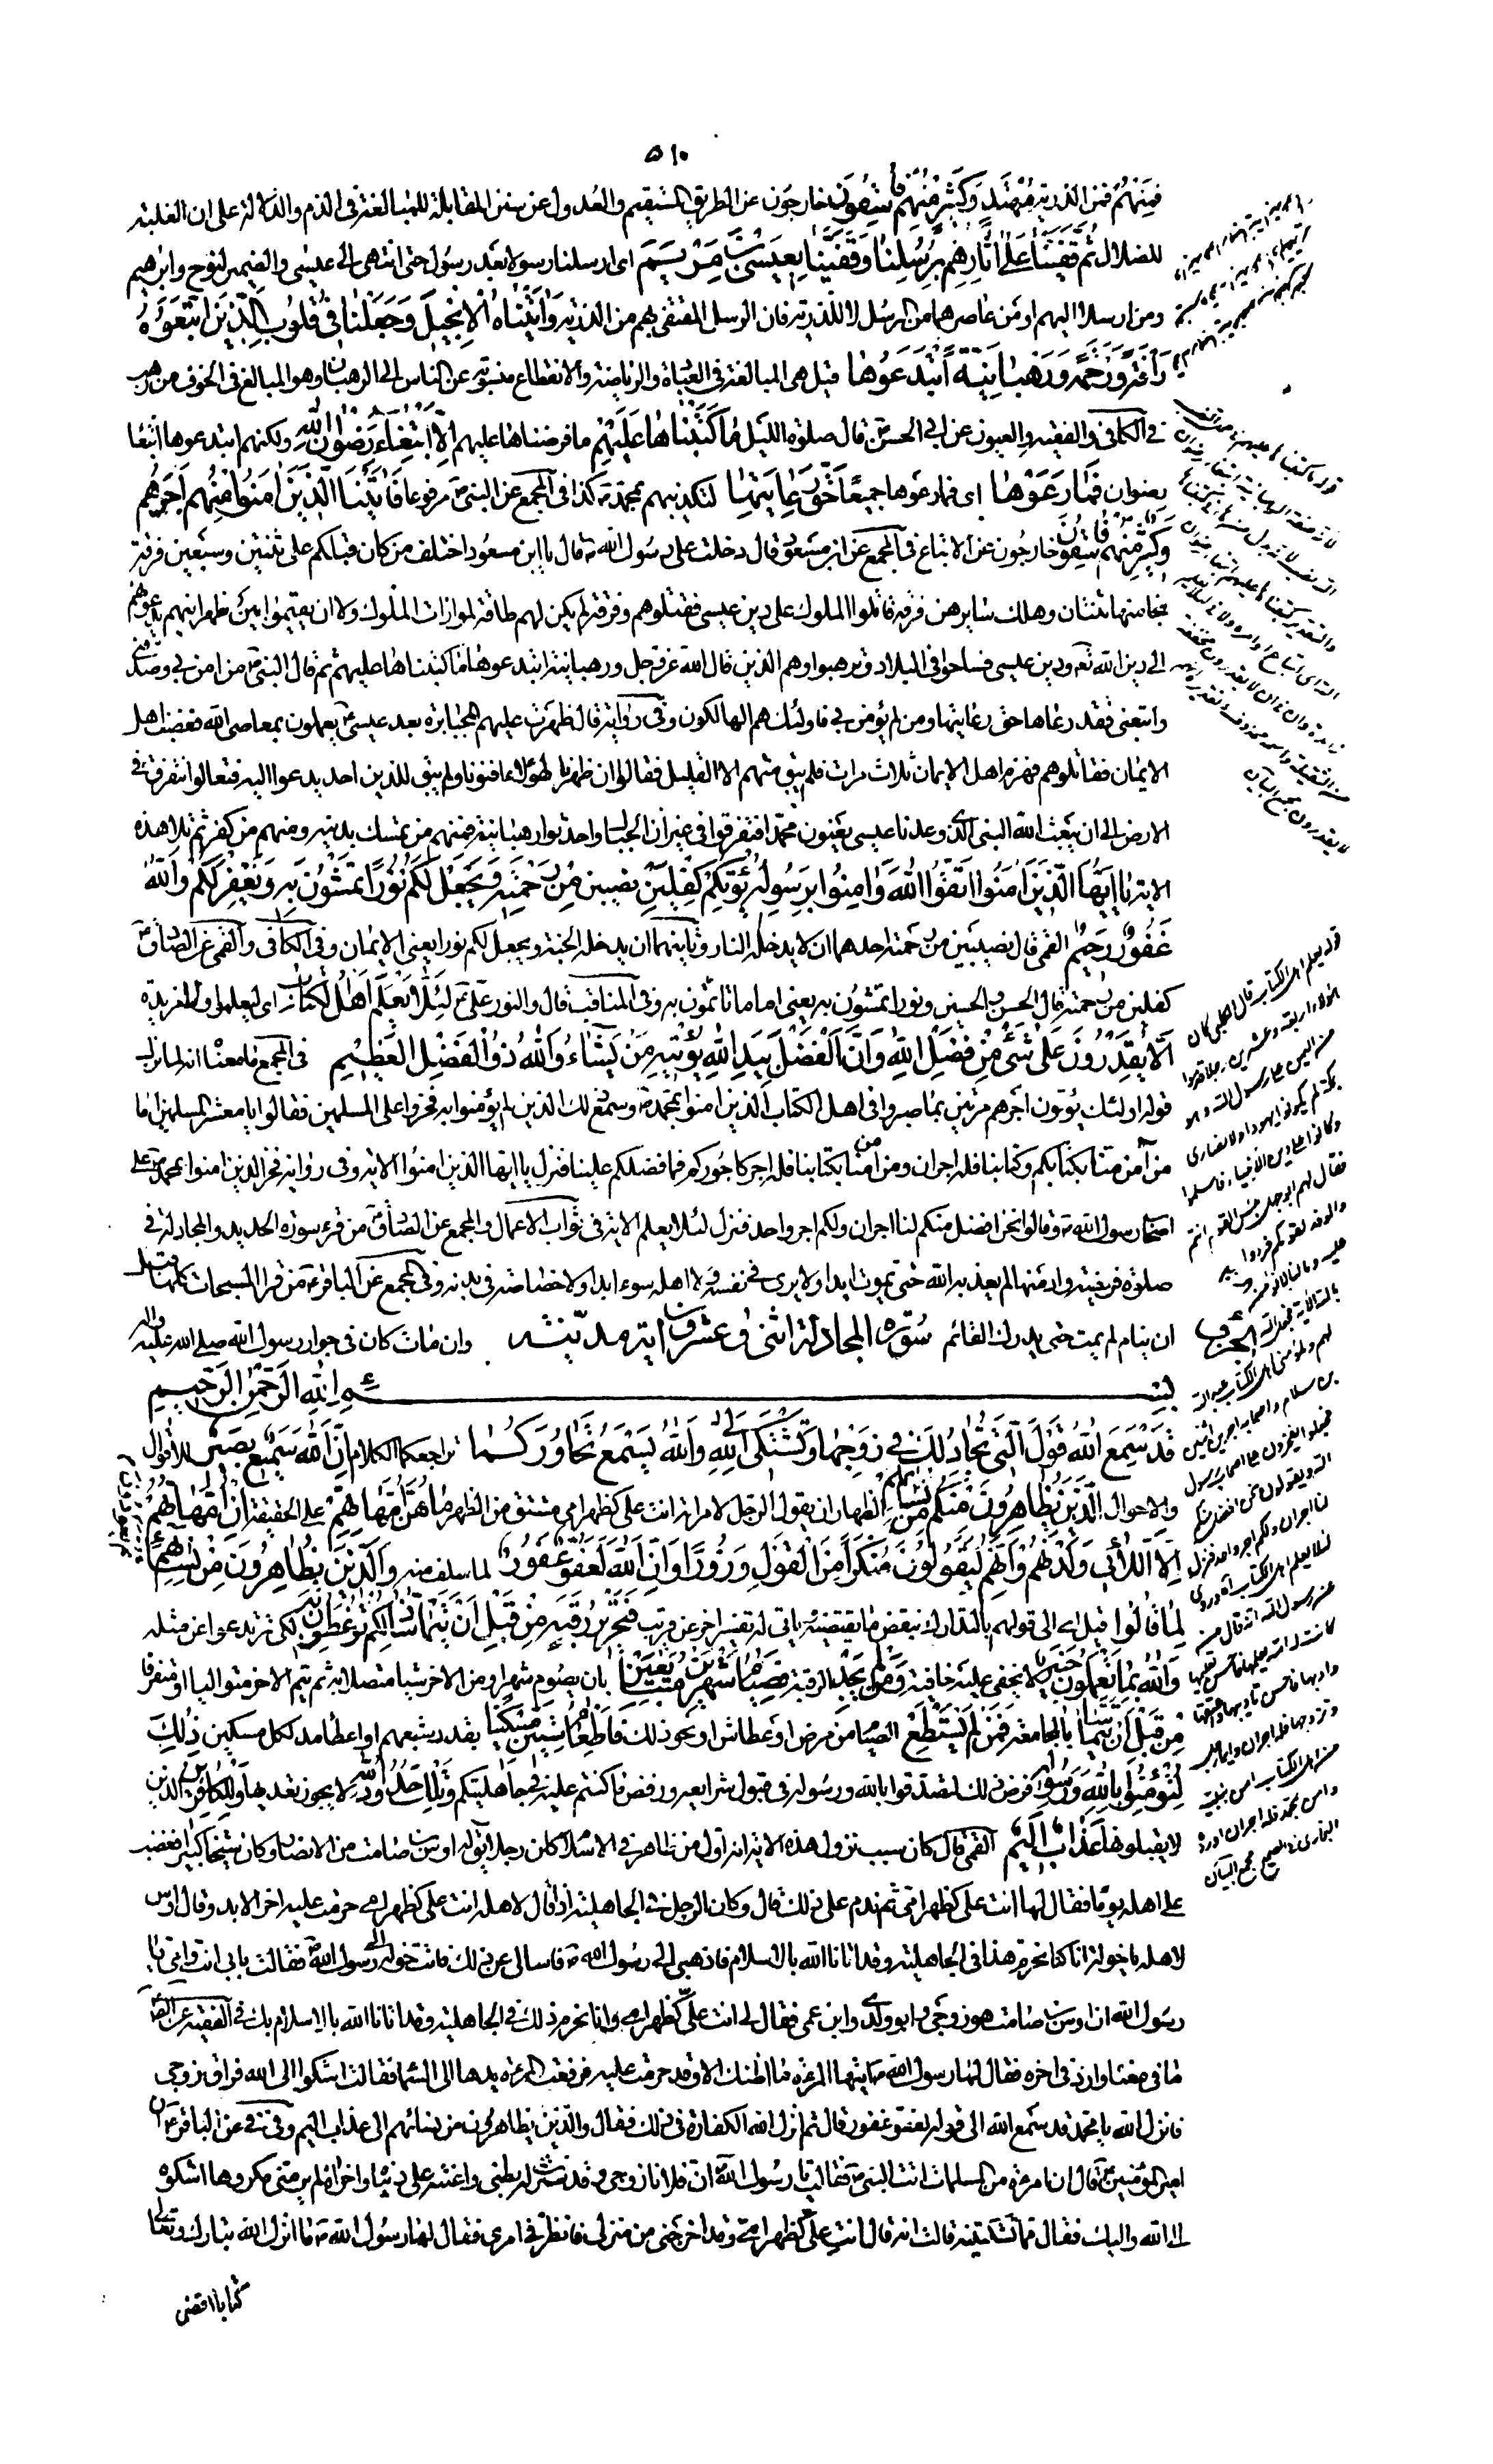 ٥١٠
فمنهم فمن الذرية مهتد وكثير منهم فاسقون خارجون عن الطريق المستقيم والعدول عن سنن المقابلة للمبالغة في الذم والدلالة على ان الغلبة
للضلال ثم قفينا على آثارهم برسلنا وقفينا بعيسى بن مريم اى ارسلنا رسولا بعد رسول حتى انتهى الى عيسى والضمير لنوح وابرهيم
ومن ارسلا اليهم او من عاصرهما من الرسل لا للذرية فان الرسل المقفى بهم من الذرية وآتيناه الانجيل وجعلنا في قلوب الذين اتبعوه
رأفة ورحمة ورهبانية ابتدعوها قيل هى المبالغة في العبادة والرياضة والانقطاع عن الناس منسوبة الى الرهبان وهو المبالغ في الخوف من رهب
في الكافي والفقيه والعيون عن ابي الحسن ع قال صلوة الليل ما كتبناها عليهم ما فرضناها عليهم الا ابتغاء رضوان الله ولكنهم ابتدعوها ابتغاء
رضوان فما رعوها اى فما رعوها جميعا حق رعايتها لتكذيبهم بمحمد ص كذا في المجمع عن النبي ص مرفوعا فآتينا الذين آمنوا منهم اجرهم
وكثير منهم فاسقون خارجون عن الاتباع في المجمع عن ابن مسعود قال دخلت على رسول الله ص قال يا ابن مسعود اختلف من كان قبلكم على ثنتين وسبعين فرقة
نجا منها ثنتان وهلك سايرهن فرقة قاتلوا الملوك على دين عيسى فقتلوهم وفرقة لم يكن لهم طاقة لموازات الملوك ولا ان يقيموا بين ظهرانيهم يدعوهم
الى دين الله تعه ودين عيسى فساحوا في البلاد وترهبوا وهم الذين قال الله عز وجل ورهبانية ابتدعوها ما كتبناها عليهم ثم قال النبي ص من آمن بي وصدقني
واتبعني فقد رعاها حق رعايتها ومن لم يؤمن بي فاولئك هم الهالكون وفي رواية قال ظهرت عليهم الجبابرة بعد عيسى ع يعملون بمعاصي الله فغضب اهل
الايمان فقاتلوهم فهزم اهل الايمان ثلاث مرات فلم يبق منهم الا القليل فقالوا ان ظهرنا لهؤلاء افنونا ولم يبق للدين احد يدعوا اليه فتعالوا نتفرق في
الارض الى ان يبعث الله النبي الذي وعدنا عيسى يعنون محمدا فتفرقوا في غيران الجبال واحدثوا رهبانية فمنهم من تمسك بدينه ومنهم من كفر ثم تلا هذه
الاية يا ايها الذين آمنوا اتقوا الله وآمنوا برسوله يؤتكم كفلين نصيبين من رحمته ويجعل لكم نورا تمشون به ويغفر لكم والله
غفور رحيم القمي قال نصيبين من رحمته احدهما ان لا يدخله النار وثانيهما ان يدخله الجنة ويجعل لكم نورا يعني الايمان وفي الكافي والقمي عن الصادق ع
كفلين من رحمته قال الحسن والحسين ونورا تمشون به يعني اماما تاتمون به وفي المناقب قال والنور علي ع لئلا يعلم اهل الكتاب اى ليعلموا ولا مزيدة
الا يقدرون على شئ من فضل الله وان الفضل بيد الله يؤتيه من يشاء والله ذو الفضل العظيم في المجمع ما معناه انه لما نزل
قوله اولئك يؤتون اجرهم مرتين بما صبروا في اهل الكتاب الذين آمنوا بمحمد ص وسمع ذلك الذين لم يؤمنوا به فخروا على المسلمين فقالوا يا معشر المسلمين اما
من آمن منا بكتابكم وكتابنا فله اجران ومن آمن منا بكتابنا فله اجر كاجوركم فما فضلكم علينا فنزل يا ايها الذين آمنوا الاية وفي رواية فخر الذين آمنوا بمحمد ص على
اصحاب رسول الله ص وقالوا نحن افضل منكم لنا اجران ولكم اجر واحد فنزل لئلا يعلم الاية في ثواب الاعمال والمجمع عن الصادق ع من قرء سورة الحديد والمجادلة في
صلوة فريضة وادمنها لم يعذبه الله حتى يموت ابدا ولا يرى في نفسه ولا اهله سوء ابدا ولا خصاصة في بدنه وفي المجمع عن الباقر ع من قرا المسبحات كلها قبل
ان ينام لم يمت حتى يدرك القائم وان مات كان في جوار رسول الله صلى الله عليه واله
سورة المجادلة اثنى وعشرون اية مدنية
بسم الله الرحمن الرحيم
قد سمع الله قول التي تجادلك في زوجها وتشتكي الى الله والله يسمع تحاوركما تراجعكما الكلام ان الله سميع بصير للاقوال
والاحوال الذين يظاهرون منكم من نسائهم الظهار ان يقول الرجل لامراته انت علي كظهر امي مشتق من الظهر ما هن امهاتهم على الحقيقة ان امهاتهم
الا اللائي ولدنهم وانهم ليقولون منكرا من القول وزورا وان الله لعفو غفور لما سلف منه والذين يظاهرون من نسائهم
ثم يعودون
لما قالوا قيل اى الى قولهم بالتدارك بنقض ما يقتضيه ياتي له تفسير اخر عن قريب فتحرير رقبة من قبل ان يتماسا ذلكم توعظون به لكي ترتدعوا عن مثله
والله بما تعملون خبير لا يخفى عليه خافية فمن لم يجد الرقبة فصيام شهرين متتابعين بان يصوم شهرا ومن الاخر شيئا متصلا به ثم يتم الاخر متواليا او متفرقا
من قبل ان يتماسا بالمجامعة فمن لم يستطع الصيام من مرض او عطاش او نحو ذلك فاطعام ستين مسكينا بقدر يشبعهم او اعطاء مد لكل مسكين ذلك
لتؤمنوا بالله ورسوله فرض ذلك لتصدقوا بالله ورسوله في قبول شرايعه ورفض ما كنتم عليه في جاهليتكم وتلك حدود الله لا يجوز تعديها وللكافرين الذين
لا يقبلونها عذاب اليم القمي قال كان سبب نزول هذه الاية انه اول من ظاهر في الاسلام كان رجلا يق له اوس بن صامت من الانصار وكان شيخا كبيرا فغضب
على اهله يوما فقال لها انت علي كظهر امي ثم ندم على ذلك قال وكان الرجل في الجاهلية اذا قال لاهله انت علي كظهر امي حرمت عليه اخر الابد وقال اوس
لاهله يا خولة انا كنا نحرم هذا في الجاهلية وقد اتانا الله بالاسلام فاذهبي الى رسول الله ص فاسالي عن ذلك فاتت خولة الى رسول الله ص فقالت بابي انت وامي يا
رسول الله ان اوس بن صامت هو زوجي وابو ولدي وابن عمي فقال لي انت علي كظهر امي وانا نحرم ذلك في الجاهلية وقد اتانا الله بالاسلام بك في الفقيه عن الصادق
ما في معناه وزاد في اخره فقال لها رسول الله ص ايتها المرءة ما اظنك الا وقد حرمت عليه فرفعت المرءة يدها الى السماء فقالت اشكوا الى الله فراق زوجي
فانزل الله يا محمد قد سمع الله الى قوله لعفو غفور قال ثم انزل الله الكفارة في ذلك فقال والذين يظاهرون من نسائهم الى عذاب اليم وفي في عن الباقر ع ان
امير المؤمنين ع قال ان امرءة من المسلمات اتت النبي ص فقالت يا رسول الله ان فلانا زوجي وقد نثرت له بطني واعنته على دنياه واخرته لم ير مني مكروها اشكوه
الى الله واليك فقال فما تشتكينه قالت انه قال انت علي كظهر امي وقد اخرجني من منزلي فانظر في امري فقال لها رسول الله ص ما انزل الله تبارك وتعالى
كتابا اقضى
قوله ما كتبناها عليهم
قوله ليعلم اهل الكتاب قال الكلبي كان
هؤلاء اربعة وعشرين رجلا قدموا
من اليمن على رسول الله وهو
بمكة لم يكونوا يهودا ولا نصارى
وكانوا على دين الانبياء فاسلموا
فقال لهم ابو جهل بئس القوم انتم
والوفد لقومكم فردوا
عليه وما لنا لا نؤمن
بالله الاية فجعل الله
لهم ولمؤمني اهل الكتاب عبد الله
بن سلام واصحابه اجرين اثنين
فجعلوا يفخرون على اصحاب رسول
الله ويقولون نحن افضل منكم
لنا اجران ولكم اجر واحد فنزل
لئلا يعلم اهل الكتاب اه وروى
عن رسول الله انه قال من
كانت له امة فعلمها فاحسن تعليمها
وادبها فاحسن تاديبها واعتقها
وتزوجها فله اجران وايما رجل
من اهل الكتاب امن بنبيه
وامن بمحمد فله اجران اورده
البخاري في الصحيح مجمع البيان